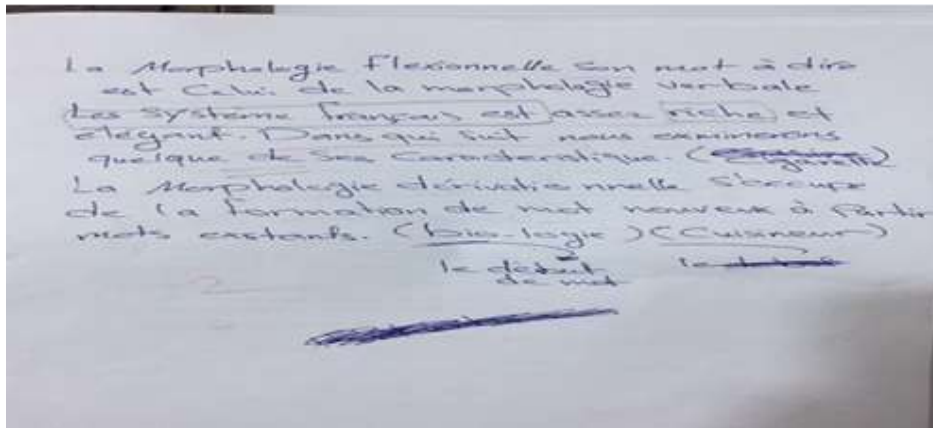 La Morphologie Flexionnelle son mot à dire
est Celui de la morphologie verbale
Les système français est assez riche et
élégant. Dans qui suit nous examinerons
quelque de ses Caractéralique. (Cigarette)
La Morphologie dérivatio nnelle s'occupe
de la formation de mot nouveux à Partir
mots existants. (bio-logie) (Cuisineur)
le début le
de mot